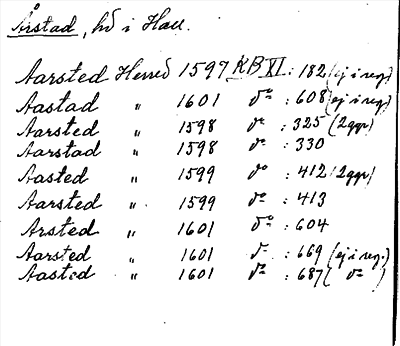 Årstad, hd i Hall.
Aarsted Herred 1597 KB XI : 182 (ej i reg.)
Aastad " 1601 do : 608 (ej i reg.)
Aarsted " 1598 do : 325 (2ggr)
Aarstad " 1598 do : 330
Aasted " 1599 do : 412 (2ggr)
Aarsted " 1599 do : 413
Arsted " 1601 do : 604
Aarsted " 1601 do : 669 (ej i reg.)
Aasted " 1601 do : 687 ( do )